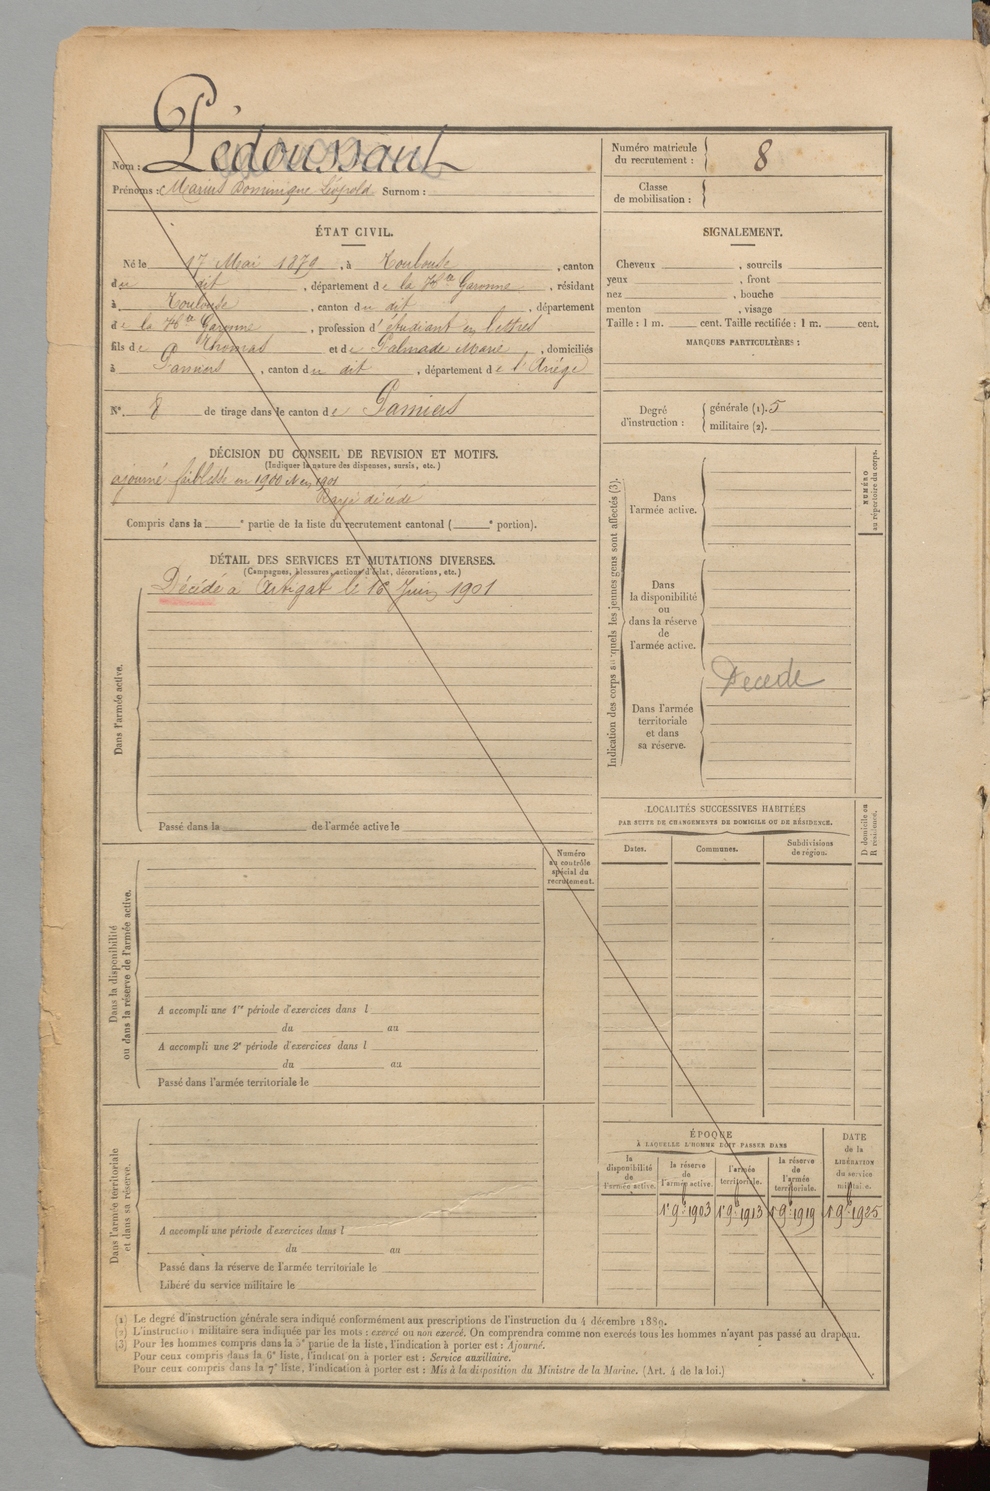 Nom : Pédoussaut
Prénoms : Marius Dominique Léopold Surnom :
Numéro matricule du recrutement : 8
Classe de mobilisation :
ÉTAT CIVIL.
Né le 17 Mai 1879, à Toulouse, canton
du dit, département de la Hte Garonne, résidant
à Toulouse, canton du dit, département
de la Hte Garonne, profession d'étudiant en lettres
fils de Thomas et de Palmade Marie, domiciliés
à Pamiers, canton du dit, département de l'Ariège
N° 8 de tirage dans le canton de Pamiers
SIGNALEMENT.
Cheveux , sourcils
yeux , front
nez , bouche
menton , visage
Taille : 1 m. cent. Taille rectifiée : 1 m. cent.
MARQUES PARTICULIÈRES :
Degré d'instruction : générale (1). 5
militaire (2).
DÉCISION DU CONSEIL DE REVISION ET MOTIFS.
(Indiquer la nature des dispenses, sursis, etc.)
ajourné faiblesse en 1900 en 1901
Rayé décédé
Compris dans la e partie de la liste du recrutement cantonal ( e portion).
DÉTAIL DES SERVICES ET MUTATIONS DIVERSES.
(Campagnes, blessures, actions d'éclat, décorations, etc.)
Décédé à Artigat le 16 Juin 1901
Dans l'armée active.
Passé dans la de l'armée active le
Indication des corps auxquels les jeunes gens sont affectés (3).
Dans l'armée active.
Dans la disponibilité ou dans la réserve de l'armée active.
Décédé
Dans l'armée territoriale et dans sa réserve.
NUMÉRO au répertoire du corps.
LOCALITÉS SUCCESSIVES HABITÉES
PAR SUITE DE CHANGEMENTS DE DOMICILE OU DE RÉSIDENCE.
Dates. Communes. Subdivisions de région.
D domicile ou R résidence.
Dans la disponibilité ou dans la réserve de l'armée active.
Numéro au contrôle spécial du recrutement.
A accompli une 1re période d'exercices dans l
du au
A accompli une 2e période d'exercices dans l
du au
Passé dans l'armée territoriale le
Dans l'armée territoriale et dans sa réserve.
A accompli une période d'exercices dans l
du au
Passé dans la réserve de l'armée territoriale le
Libéré du service militaire le
ÉPOQUE
À LAQUELLE L'HOMME DOIT PASSER DANS
la disponibilité de l'armée active.
la réserve de l'armée active.
l'armée territoriale.
la réserve de l'armée territoriale.
DATE de la LIBÉRATION du service militaire.
1er 9bre 1903 1er 9bre 1913 1er 9bre 1919 1er 9bre 1925
(1) Le degré d'instruction générale sera indiqué conformément aux prescriptions de l'instruction du 4 décembre 1889.
(2) L'instruction militaire sera indiquée par les mots : exercé ou non exercé. On comprendra comme non exercés tous les hommes n'ayant pas passé au drapeau.
(3) Pour les hommes compris dans la 5e partie de la liste, l'indication à porter est : Ajourné.
Pour ceux compris dans la 6e liste, l'indication à porter est : Service auxiliaire.
Pour ceux compris dans la 7e liste, l'indication à porter est : Mis à la disposition du Ministre de la Marine. (Art. 4 de la loi.)